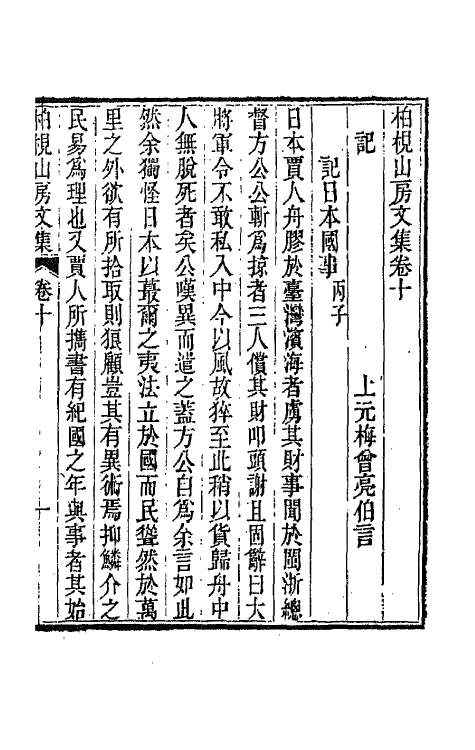 柏梘山房文集卷十
上元梅曾亮伯言
記
記日本國事 丙子
日本賈人舟膠於臺灣濱海者虜其財事聞於閩浙總
督方公公斬爲掠者三人償其財叩頭謝且固辭曰大
將軍令不敢私入中今以風故猝至此稍以貨歸舟中
人無脫死者矣公嘆異而遣之蓋方公自爲余言如此
然余獨怪日本以蕞爾之夷法立於國而民聳然於萬
里之外欲有所拾取則狼顧豈其有異術焉抑鱗介之
民易爲理也又賈人所攜書有紀國之年與事者其始
柏梘山房文集 卷十 一